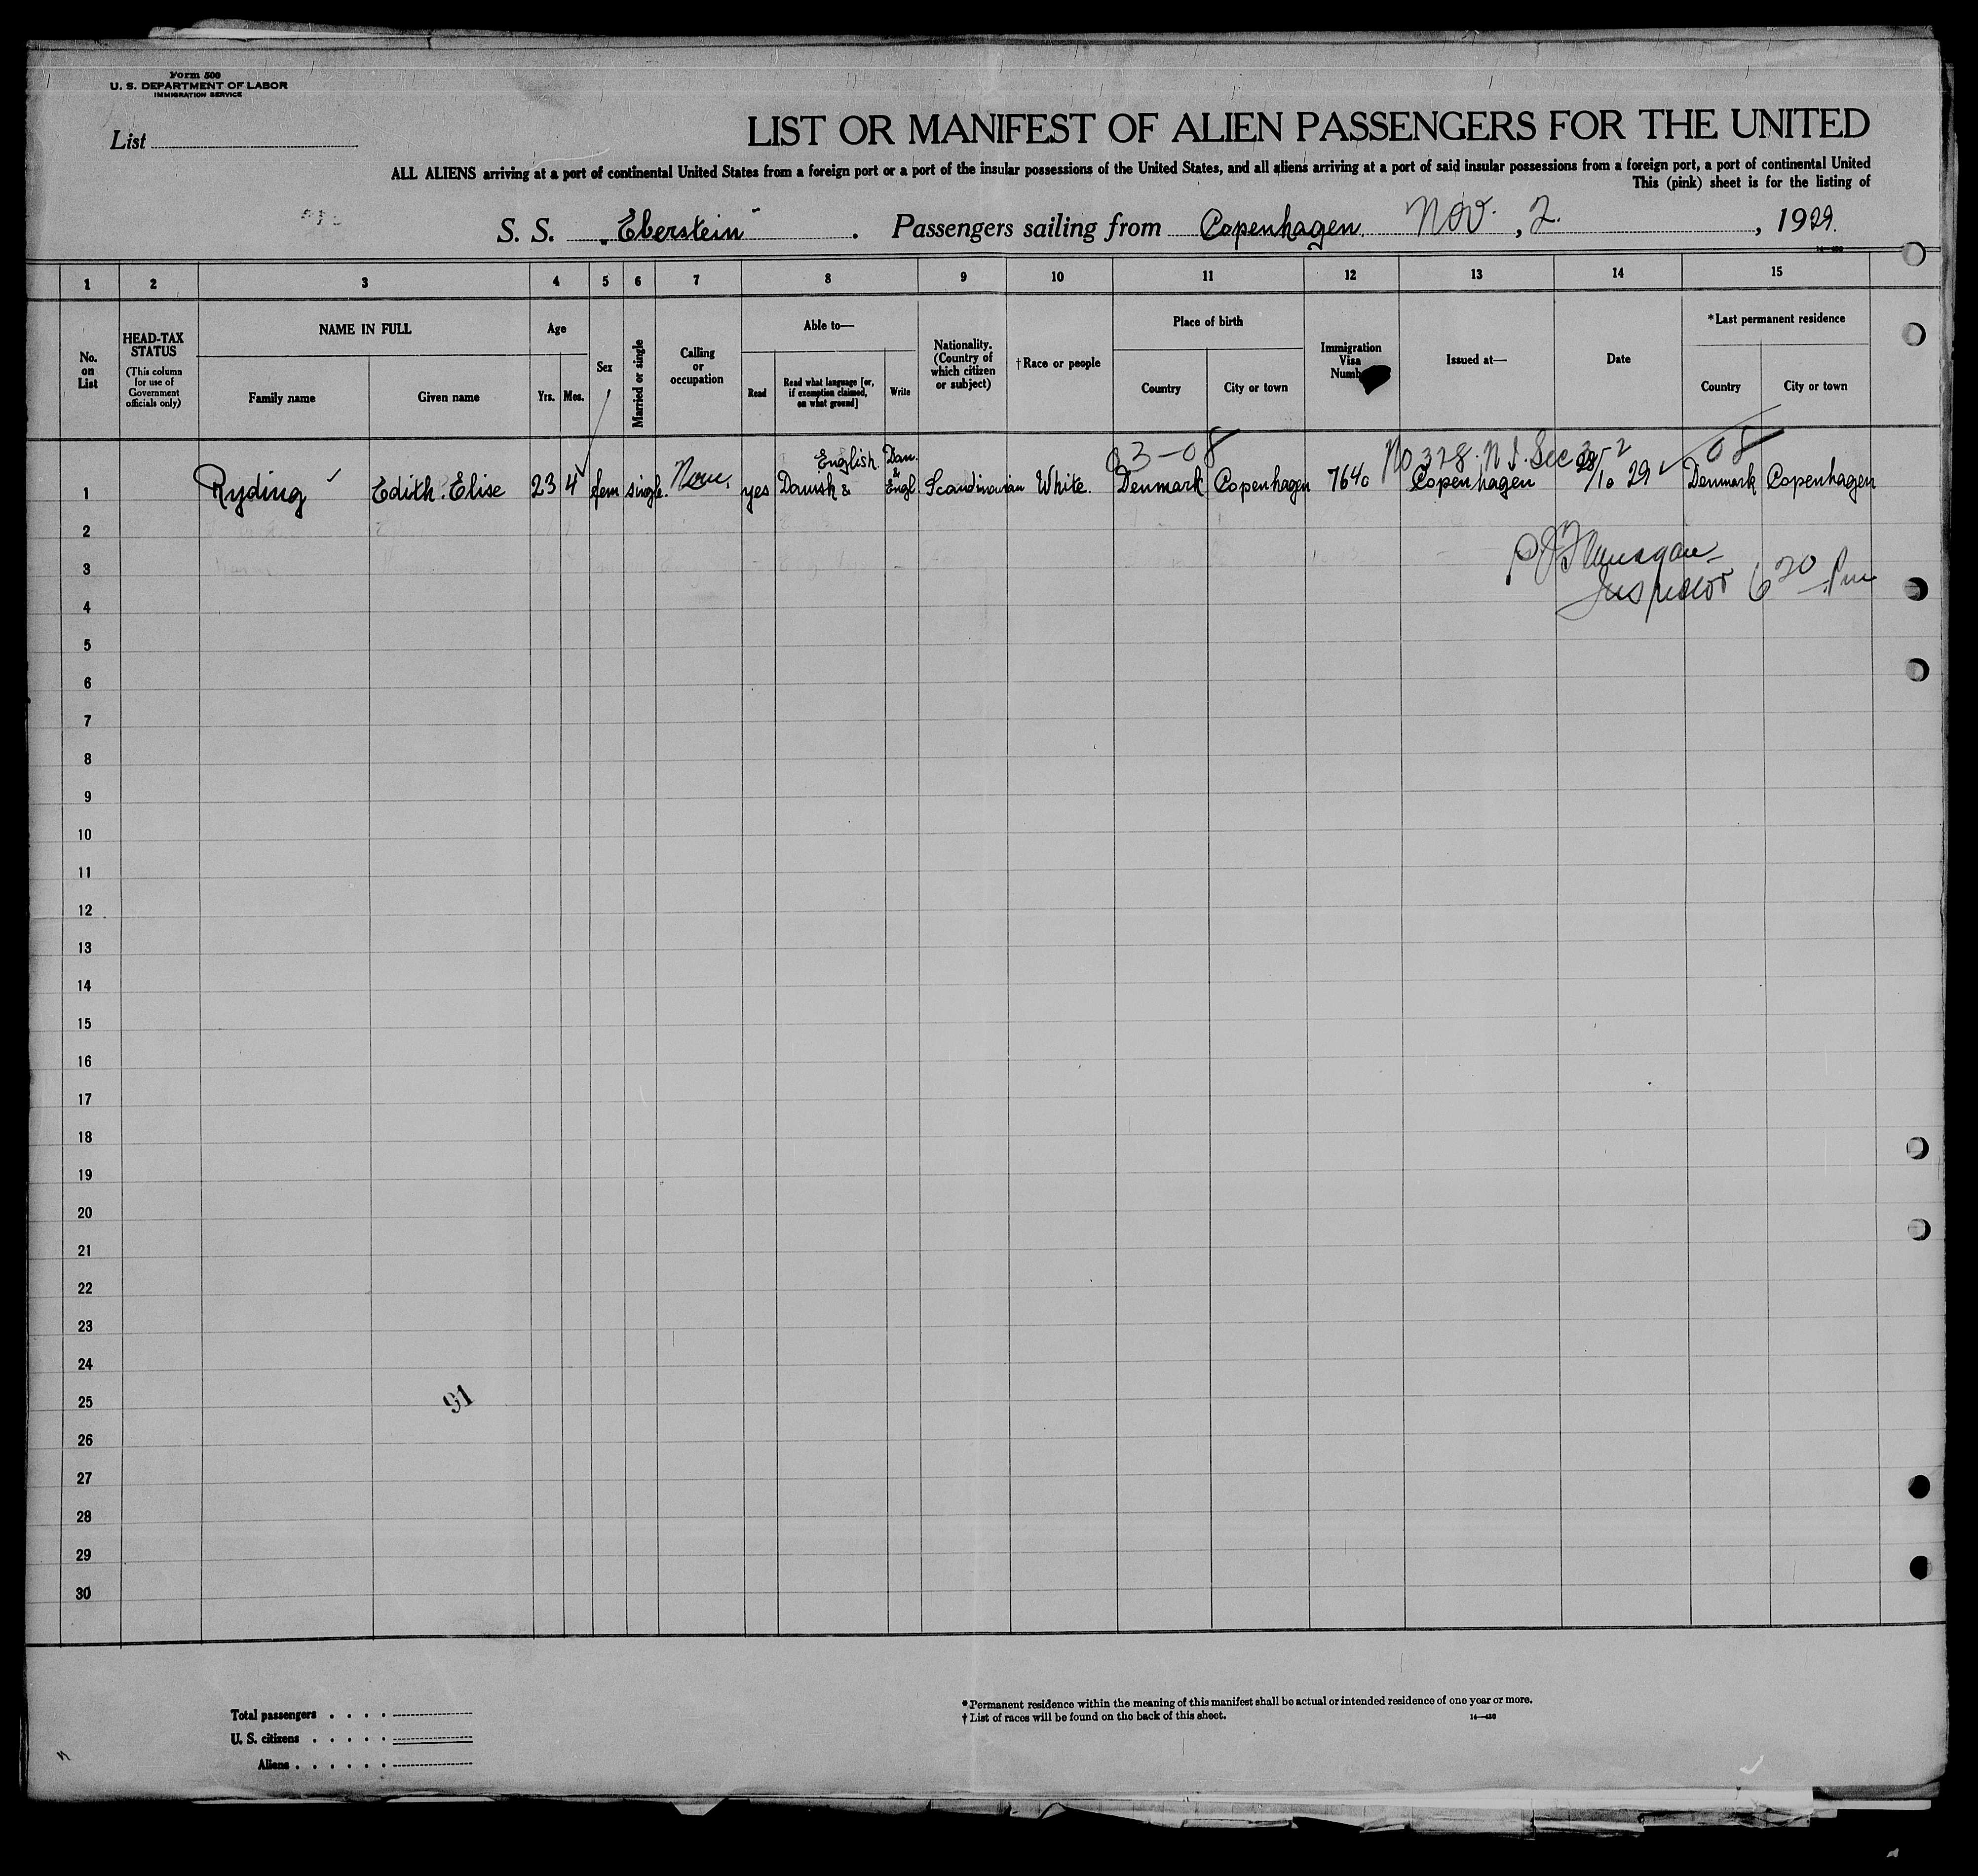 Form 500
U. S. DEPARTMENT OF LABOR
IMMIGRATION SERVICE
List
LIST OR MANIFEST OF ALIEN PASSENGERS FOR THE UNITED
ALL ALIENS arriving at a port of continental United States from a foreign port or a port of the insular possessions of the United States, and all aliens arriving at a port of said insular possessions from a foreign port, a port of continental United
This (pink) sheet is for the listing of
S. S. „Eberstein" . Passengers sailing from Copenhagen. Nov. , 2. , 1929.
1 2 3 4 5 6 7 8 9 10 11 12 13 14 15
No. on List
HEAD-TAX STATUS
(This column for use of Government officials only)
NAME IN FULL
Family name Given name
Age
Yrs. Mos.
Sex
Married or single
Calling or occupation
Able to—
Read
Read what language [or, if exemption claimed, on what ground]
Write
Nationality. (Country of which citizen or subject)
†Race or people
Place of birth
Country City or town
Immigration Visa
Issued at—
Date
*Last permanent residence
Country City or town
03-08 No 328. 08
1 Ryding Edith. Elise 23 4 fem single. yes Danish & English. Dan. & Engl. Scandinavian White. Denmark Copenhagen 7640 Copenhagen 29 Denmark Copenhagen
2
3
Inspector 6 20 Pm
4
5
6
7
8
9
10
11
12
13
14
15
16
17
18
19
20
21
22
23
24
25
91
26
27
28
29
30
Total passengers
U. S. citizens
Aliens
*Permanent residence within the meaning of this manifest shall be actual or intended residence of one year or more.
†List of races will be found on the back of this sheet.